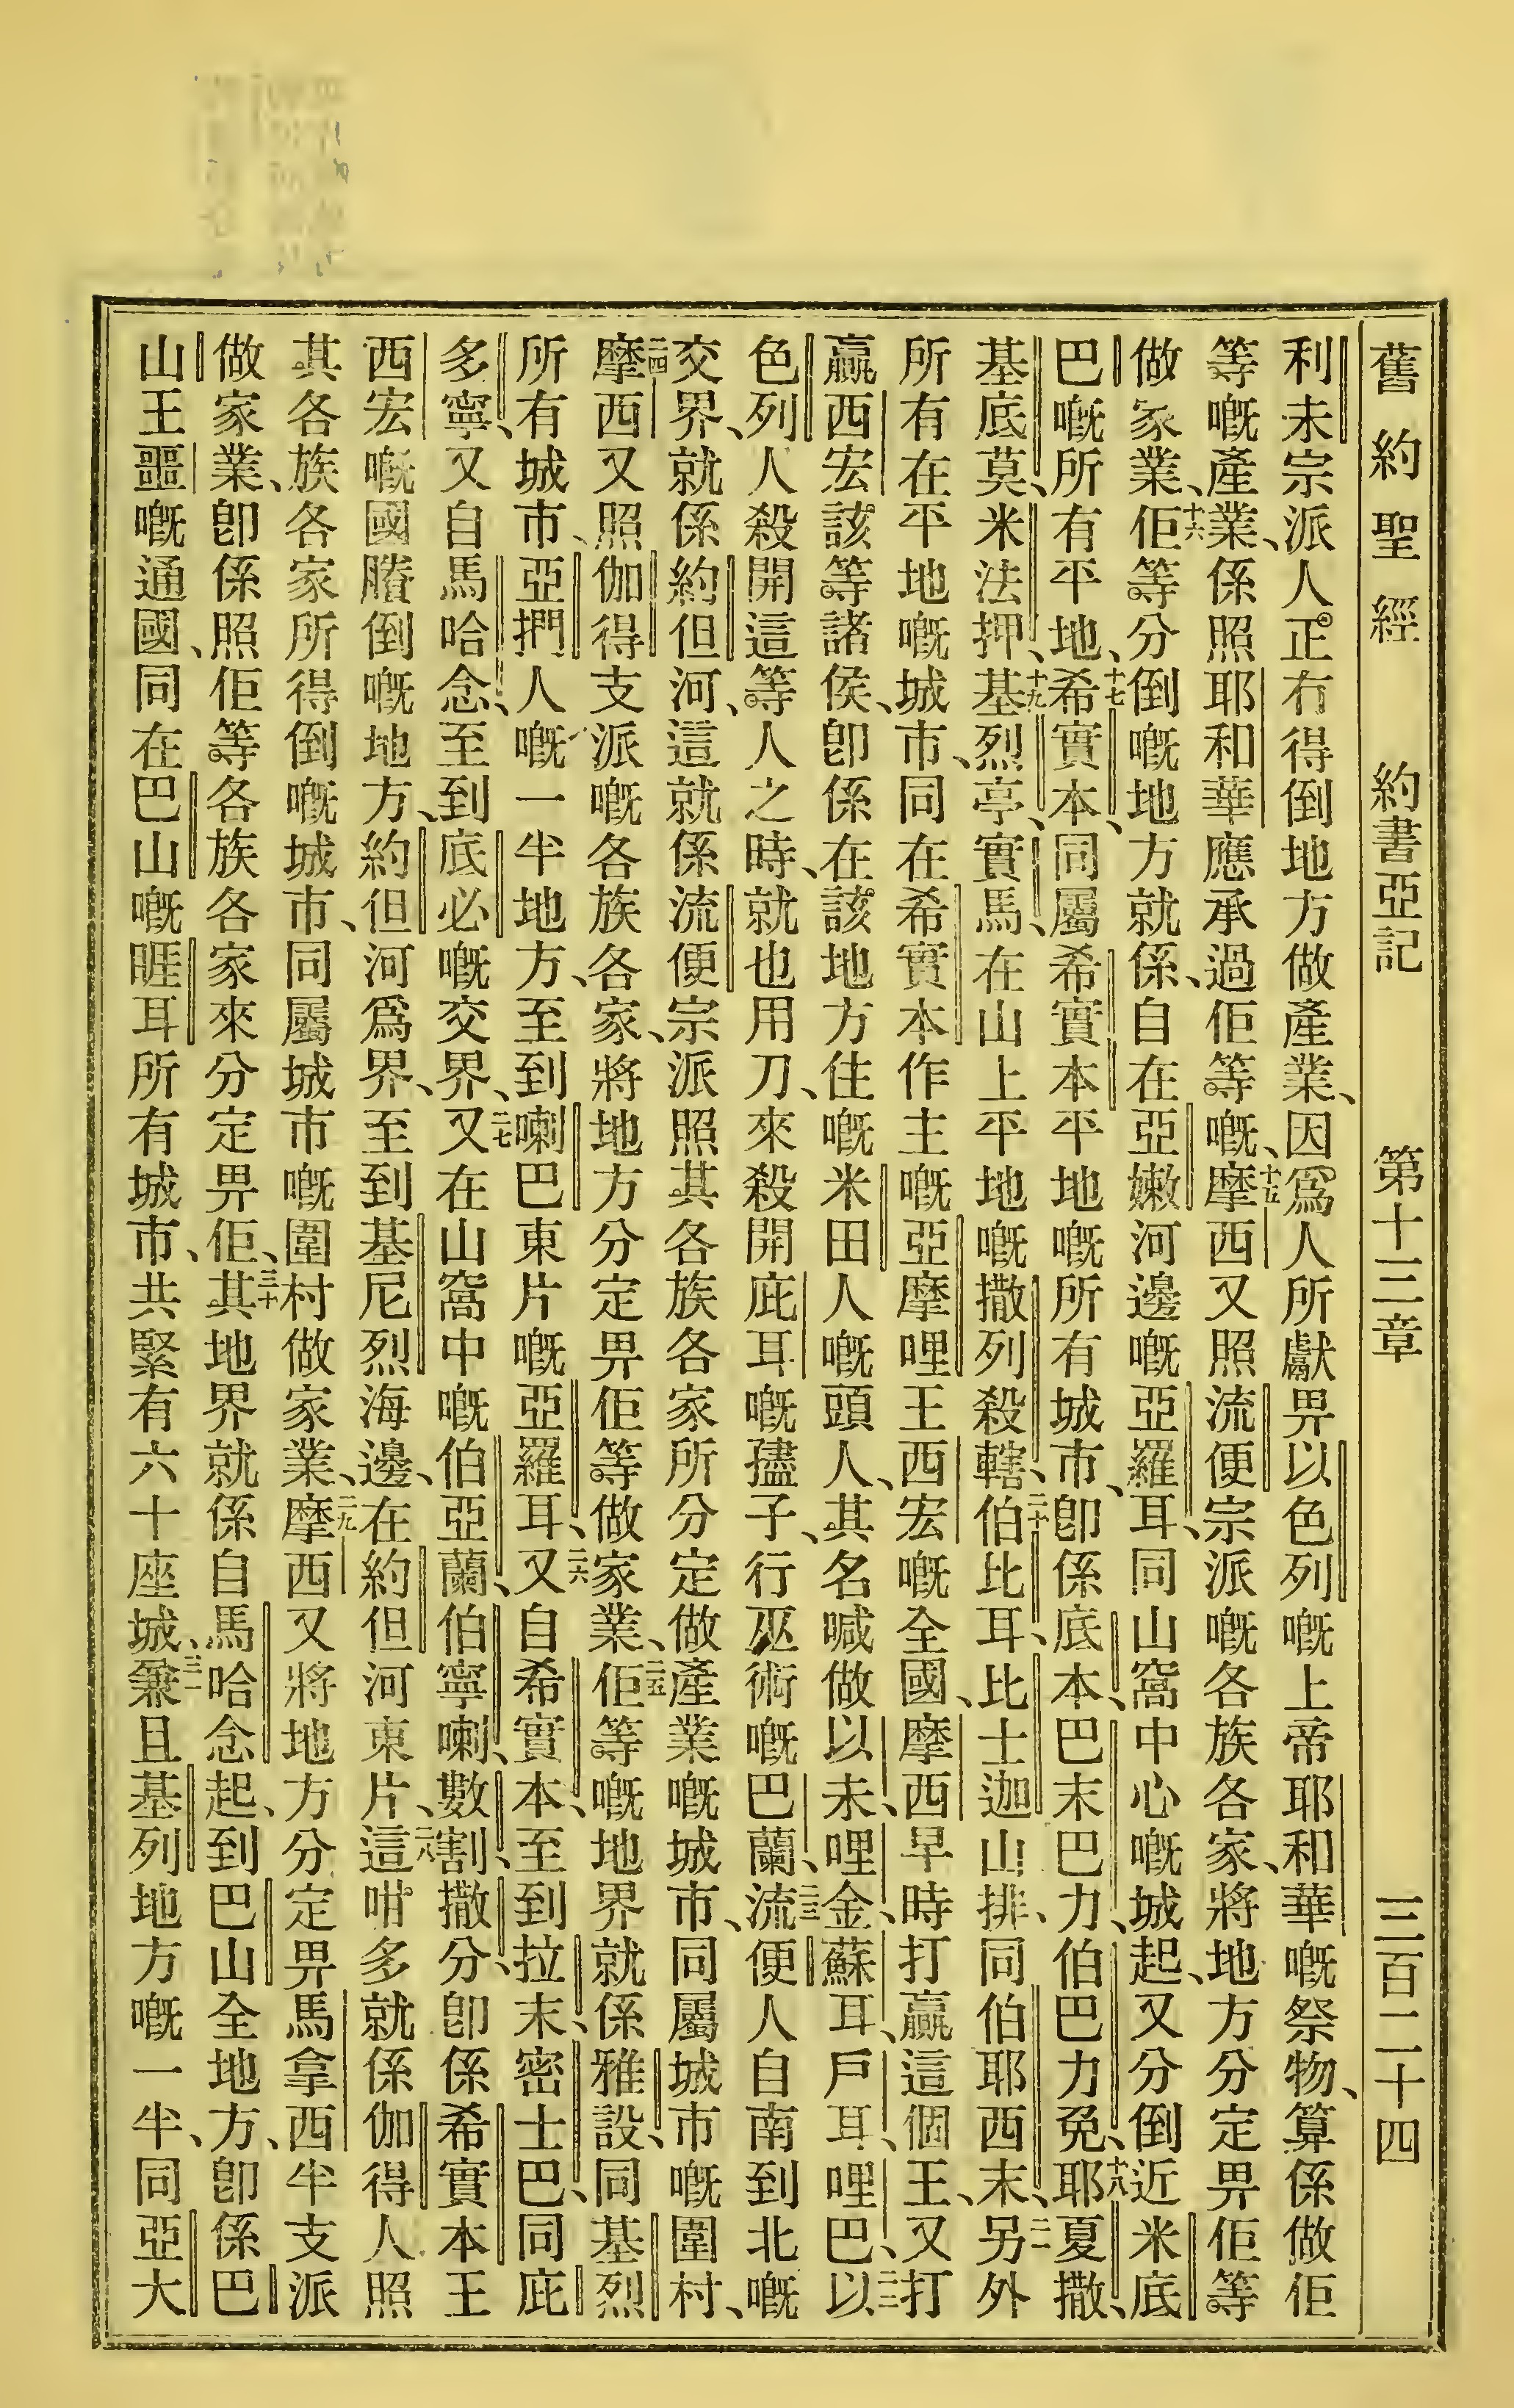 舊約聖經 約書亞記 第十三章 三百二十四
利未宗派人正冇得倒地方做產業、因爲人所獻畀以色列嘅上帝耶和華嘅祭物、算係做佢
等嘅產業、係照耶和華應承過佢等嘅、十五摩西又照流便宗派嘅各族各家、將地方分定畀佢等
做家業、十六佢等分倒嘅地方就係、自在亞嫩河邊嘅亞羅耳、同山窩中心嘅城起、又分倒近米底
巴嘅所有平地、十七希實本、同屬希實本平地嘅所有城市、卽係底本、巴末巴力、伯巴力免、十八耶夏撒、
基底莫、米法押、十九基烈亭、實馬、在山上平地嘅撒列殺轄、二十伯比耳、比士迦山排、同伯耶西末、二一另外
所有在平地嘅城市、同在希實本作主嘅亞摩哩王西宏嘅全國、摩西早時打贏這個王、又打
贏西宏該等諸侯、卽係在該地方住嘅米田人嘅頭人、其名喊做以未、哩金、蘇耳、戶耳、哩巴、二二以
色列人殺開這等人之時、就也用刀、來殺開庇耳嘅孻子、行巫術嘅巴蘭、二三流便人自南到北嘅
交界、就係約但河、這就係流便宗派照其各族各家所分定做產業嘅城市、同屬城市嘅圍村、
二四摩西又照伽得支派嘅各族各家、將地方分定畀佢等做家業、二五佢等嘅地界就係雅設、同基烈
所有城市、亞捫人嘅一半地方、至到喇巴東片嘅亞羅耳、二六又自希實本、至到拉末、密士巴、同庇
多寧、又自馬哈念、至到底必嘅交界、二七又在山窩中嘅伯亞蘭、伯寧喇、數割、撒分、卽係希實本王
西宏嘅國賸倒嘅地方、約但河爲界、至到基尼烈海邊、在約但河東片、二八這咁多就係伽得人照
其各族各家所得倒嘅城市、同屬城市嘅圍村做家業、二九摩西又將地方分定畀馬拿西半支派
做家業、卽係照佢等各族各家來分定畀佢、三十其地界就係自馬哈念起、到巴山全地方、卽係巴
山王噩嘅通國、同在巴山嘅睚耳所有城市、共緊有六十座城、三一兼且基列地方嘅一半、同亞大